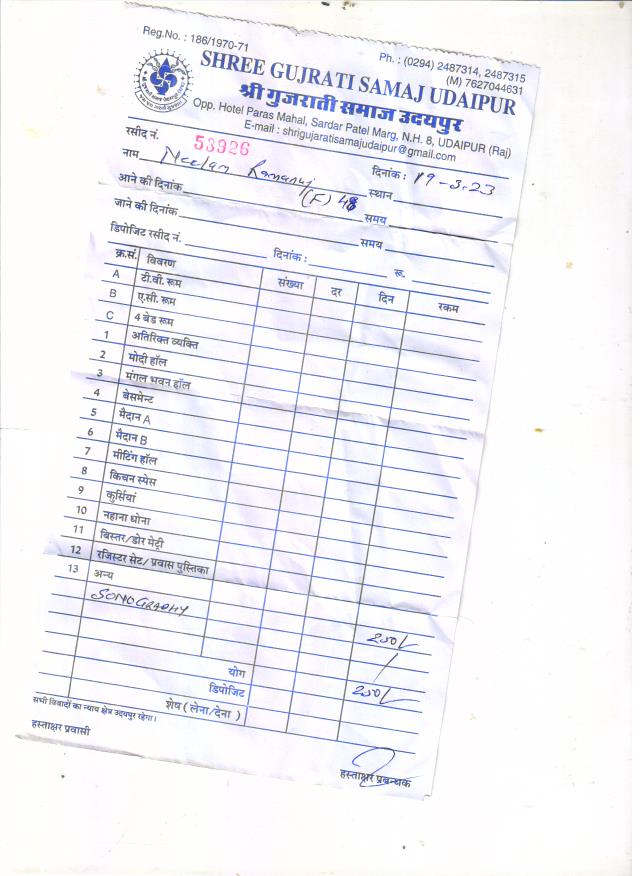 Reg.No. : 186/1970-71
Ph. : (0294) 2487314, 2487315
(M) 7627044631
SHREE GUJRATI SAMAJ UDAIPUR
श्री गुजराती समाज उदयपुर
Opp. Hotel Paras Mahal, Sardar Patel Marg, N.H. 8, UDAIPUR (Raj)
E-mail : shrigujaratisamajudaipur@gmail.com
रसीद नं. 53926 दिनांक : 19-3.23
नाम Neelam Ramanuj (F) 48 स्थान
आने की दिनांक समय
जाने की दिनांक समय
डिपोजिट रसीद नं. दिनांक : रू.
क्र.सं. विवरण संख्या दर दिन रकम
A टी.वी. रूम
B ए.सी. रूम
C 4 बेड रूम
1 अतिरिक्त व्यक्ति
2 मोदी हॉल
3 मंगल भवन हॉल
4 बेसमेन्ट
5 मैदान A
6 मैदान B
7 मीटिंग हॉल
8 किचन स्पेस
9 कुर्सियां
10 नहाना धोना
11 बिस्तर/डोर मेट्री
12 रजिस्टर सेट/ प्रवास पुस्तिका
13 अन्य
SONOGRAPHY 250/-
योग /
डिपोजिट 250/-
शेष ( लेना/देना )
सभी विवादों का न्याय क्षेत्र उदयपुर रहेगा।
हस्ताक्षर प्रवासी हस्ताक्षर प्रबन्धक